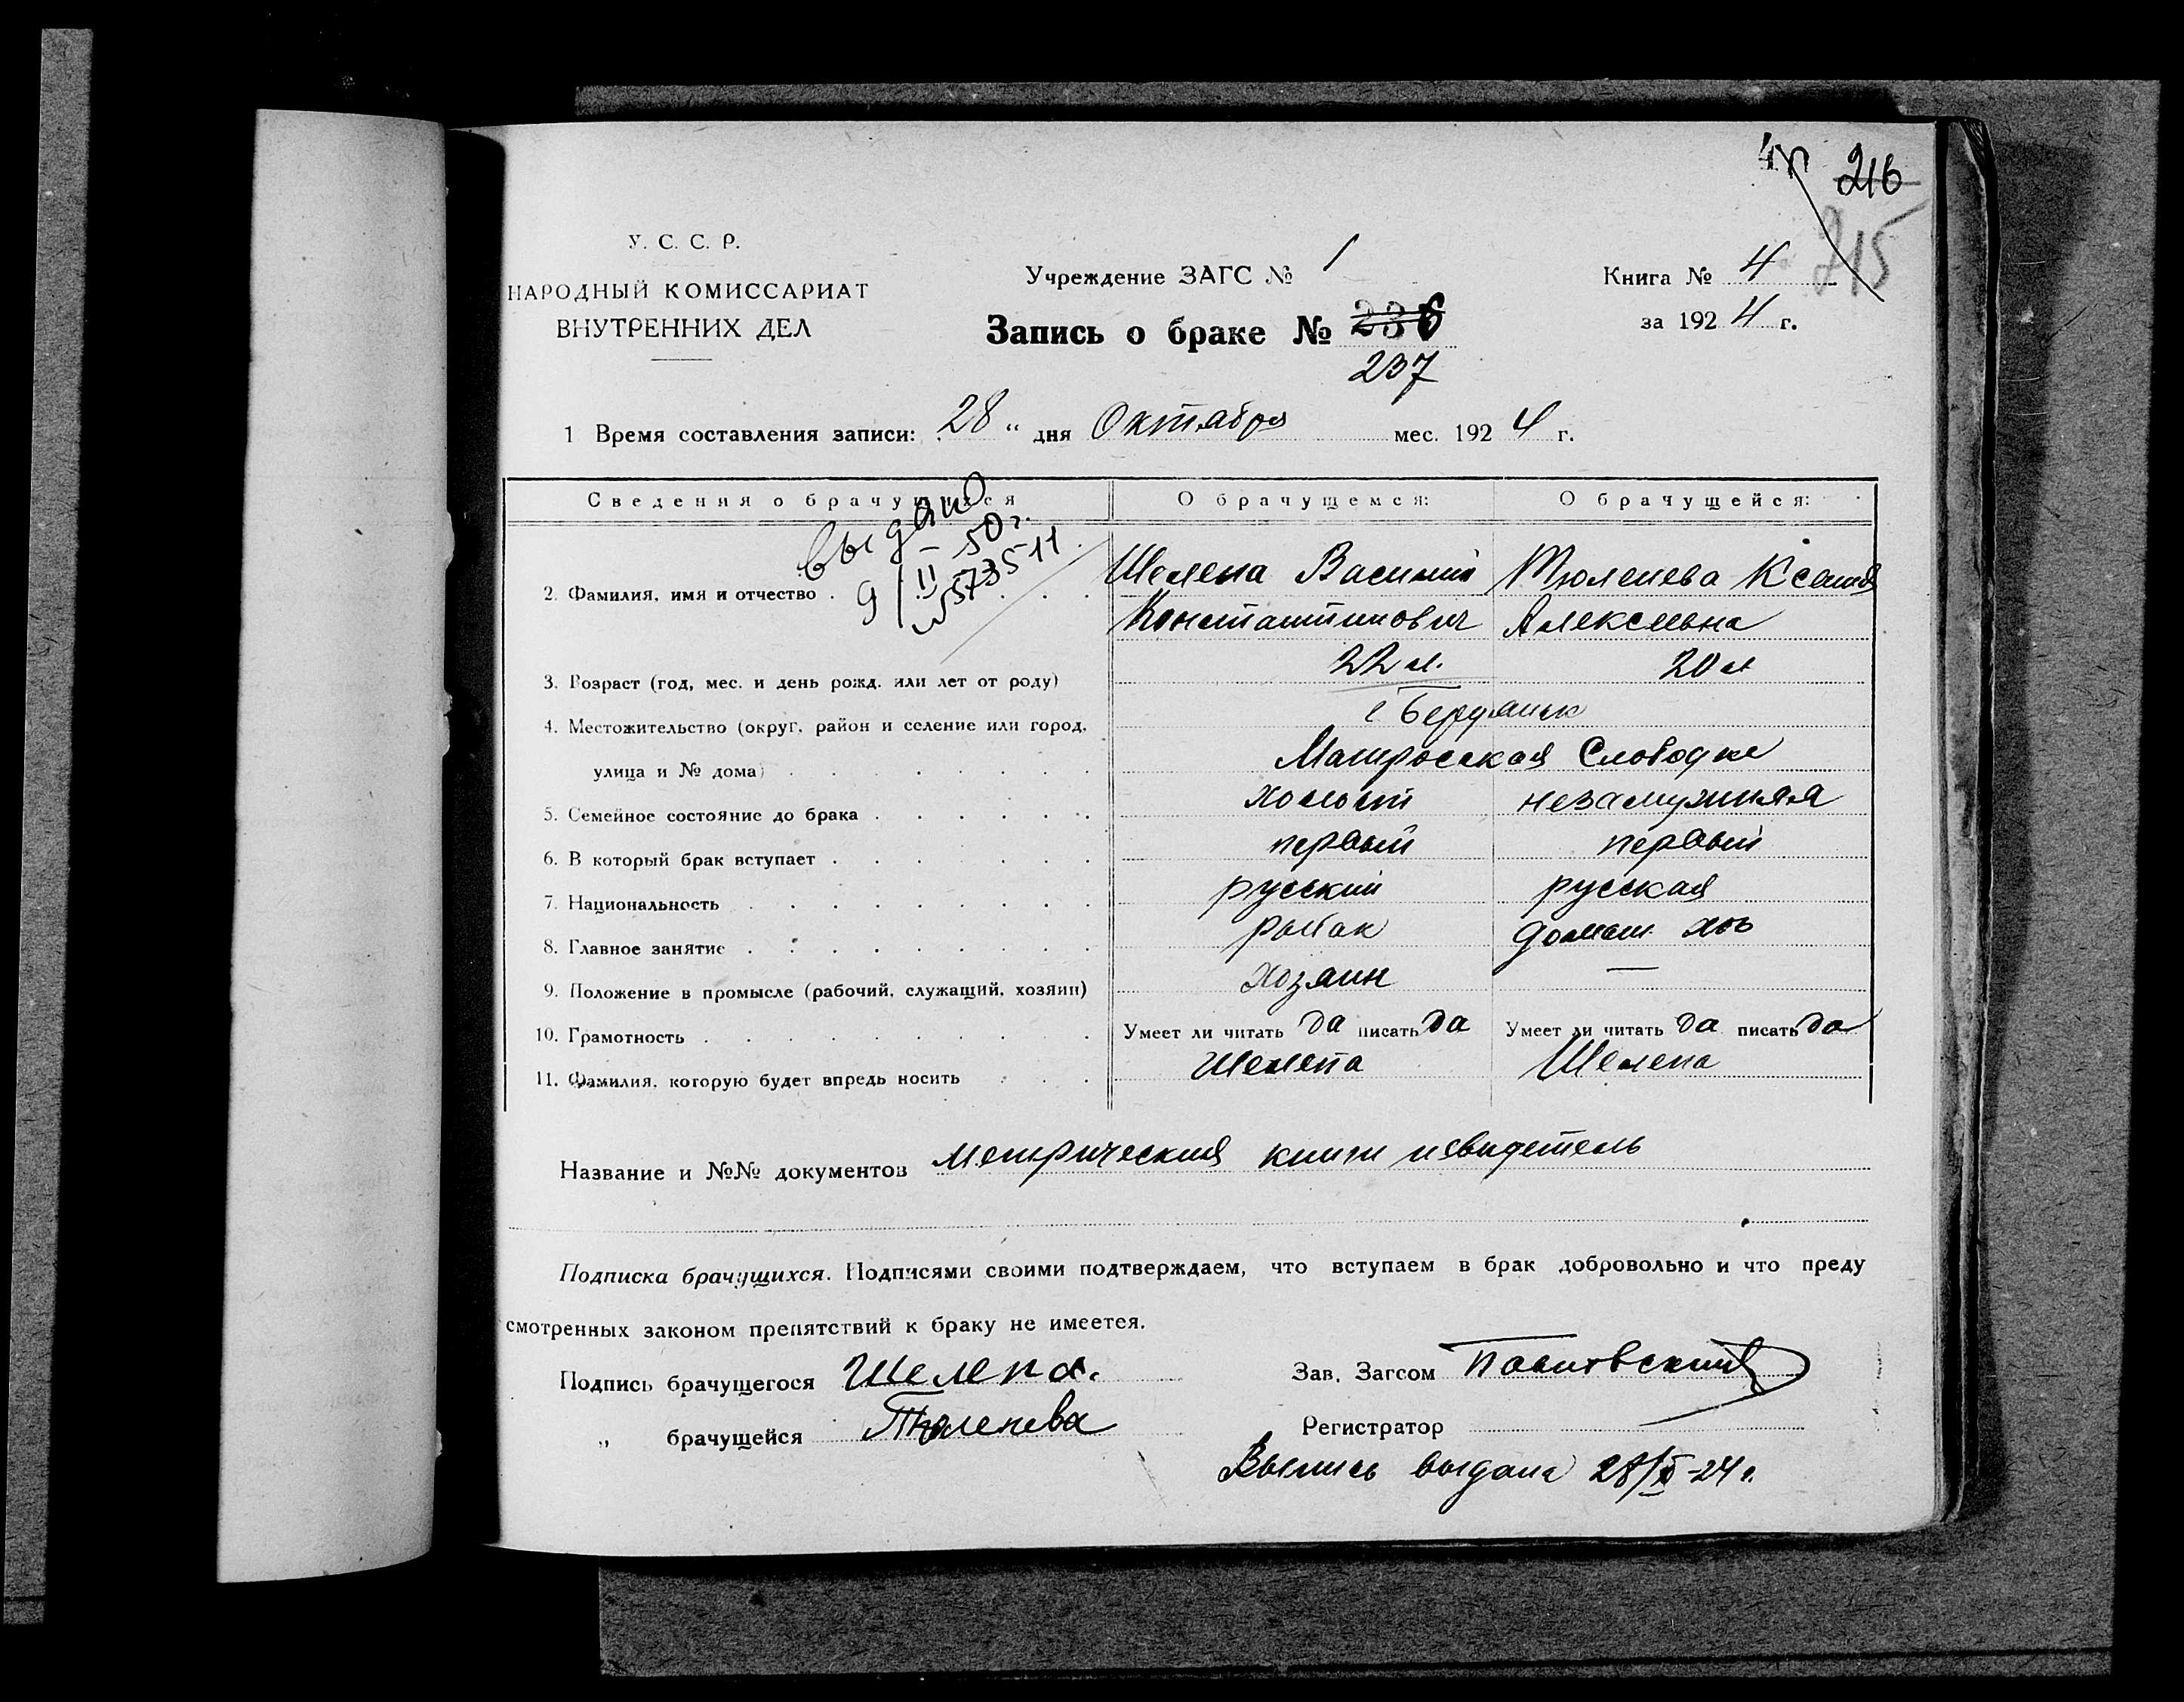 216
215
У. С. С. Р.
НАРОДНЫЙ КОМИССАРИАТ
ВНУТРЕННИХ ДЕЛ
Учреждение ЗАГС № 1
Запись о браке № 236
237
Книга № 4
за 1924 г.
1 Время составления записи: 28 " дня Октября мес. 1924 г.
Сведения о брачущихся О брачущемся: О брачущейся:
выдано
9/II – 50 г.
573511
2. Фамилия, имя и отчество . Шелепа Василий Тюленева Ксения
Константинович Алексеевна
3. Возраст (год, мес. и день рожд. или лет от роду) 22 л. 20 л
4. Местожительство (округ, район и селение или город, г Бердянск
улица и № дома) Матросская Слободка
5. Семейное состояние до брака холост незамужняя
6. В который брак вступает первый первый
7. Национальность русский русская
8. Главное занятие рыбак домаш. хоз
9. Положение в промысле (рабочий, служащий, хозяин) Хозяин —
10. Грамотность Умеет ли читать да писать да Умеет ли читать да писать да
11. Фамилия, которую будет впредь носить Шелепа Шелепа
Название и №№ документов метрическия книги и свидетель
Подписка брачущихся. Подписями своими подтверждаем, что вступаем в брак добровольно и что преду
смотренных законом препятствий к браку не имеется.
Подпись брачущегося Шелепа. Зав. Загсом
„ брачущейся Тюленева Регистратор
Выпись выдана 28/X-24 г.